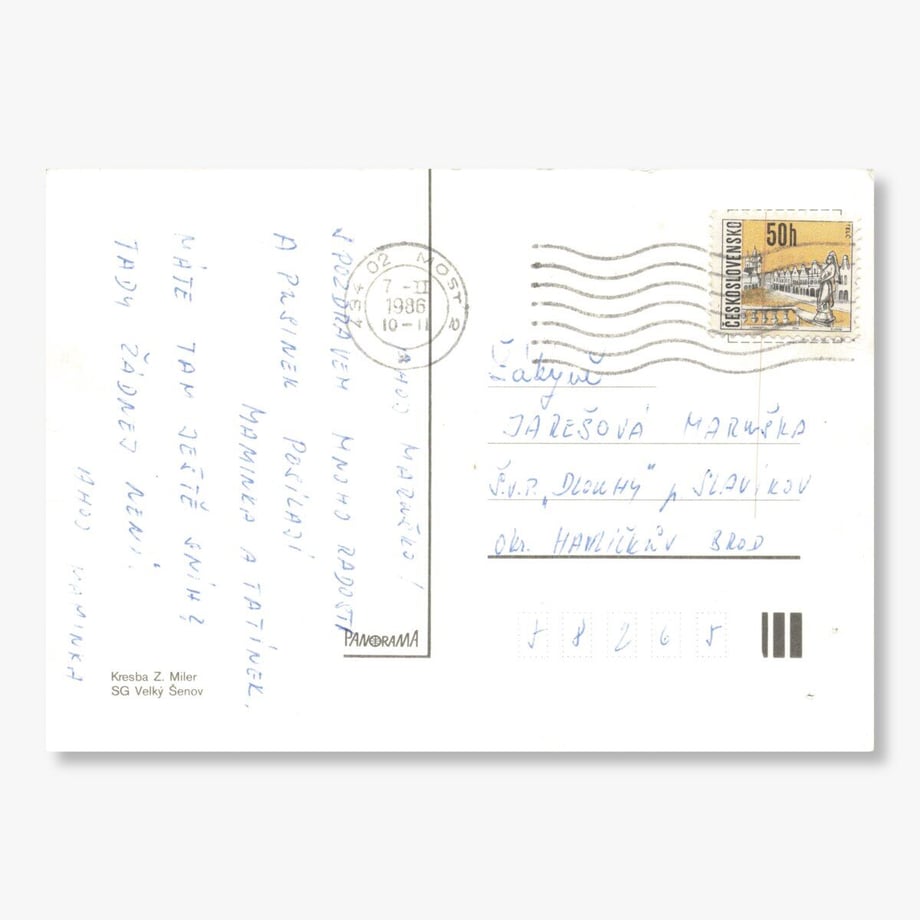 AHOJ MARUŠKO!
S POZDRAVEM MNOHO RADOSTI
A PUSINEK POSÍLAJÍ
MAMINKA A TATÍNEK.
MÁTE TAM JEŠTĚ SNÍH?
TADY ŽÁDNEJ NENÍ.
AHOJ MAMINKA
Kresba Z. Miler
SG Velký Šenov
PANORAMA
434 02 MOST 2
7.-II
1986
10-11
ČESKOSLOVENSKO
50h
Žákyně
JAREŠOVÁ MARUŠKA
Š.v.P. „DLOUHÝ" p SLAVÍKOV
Okr. HAVLÍČKŮV BROD
58265